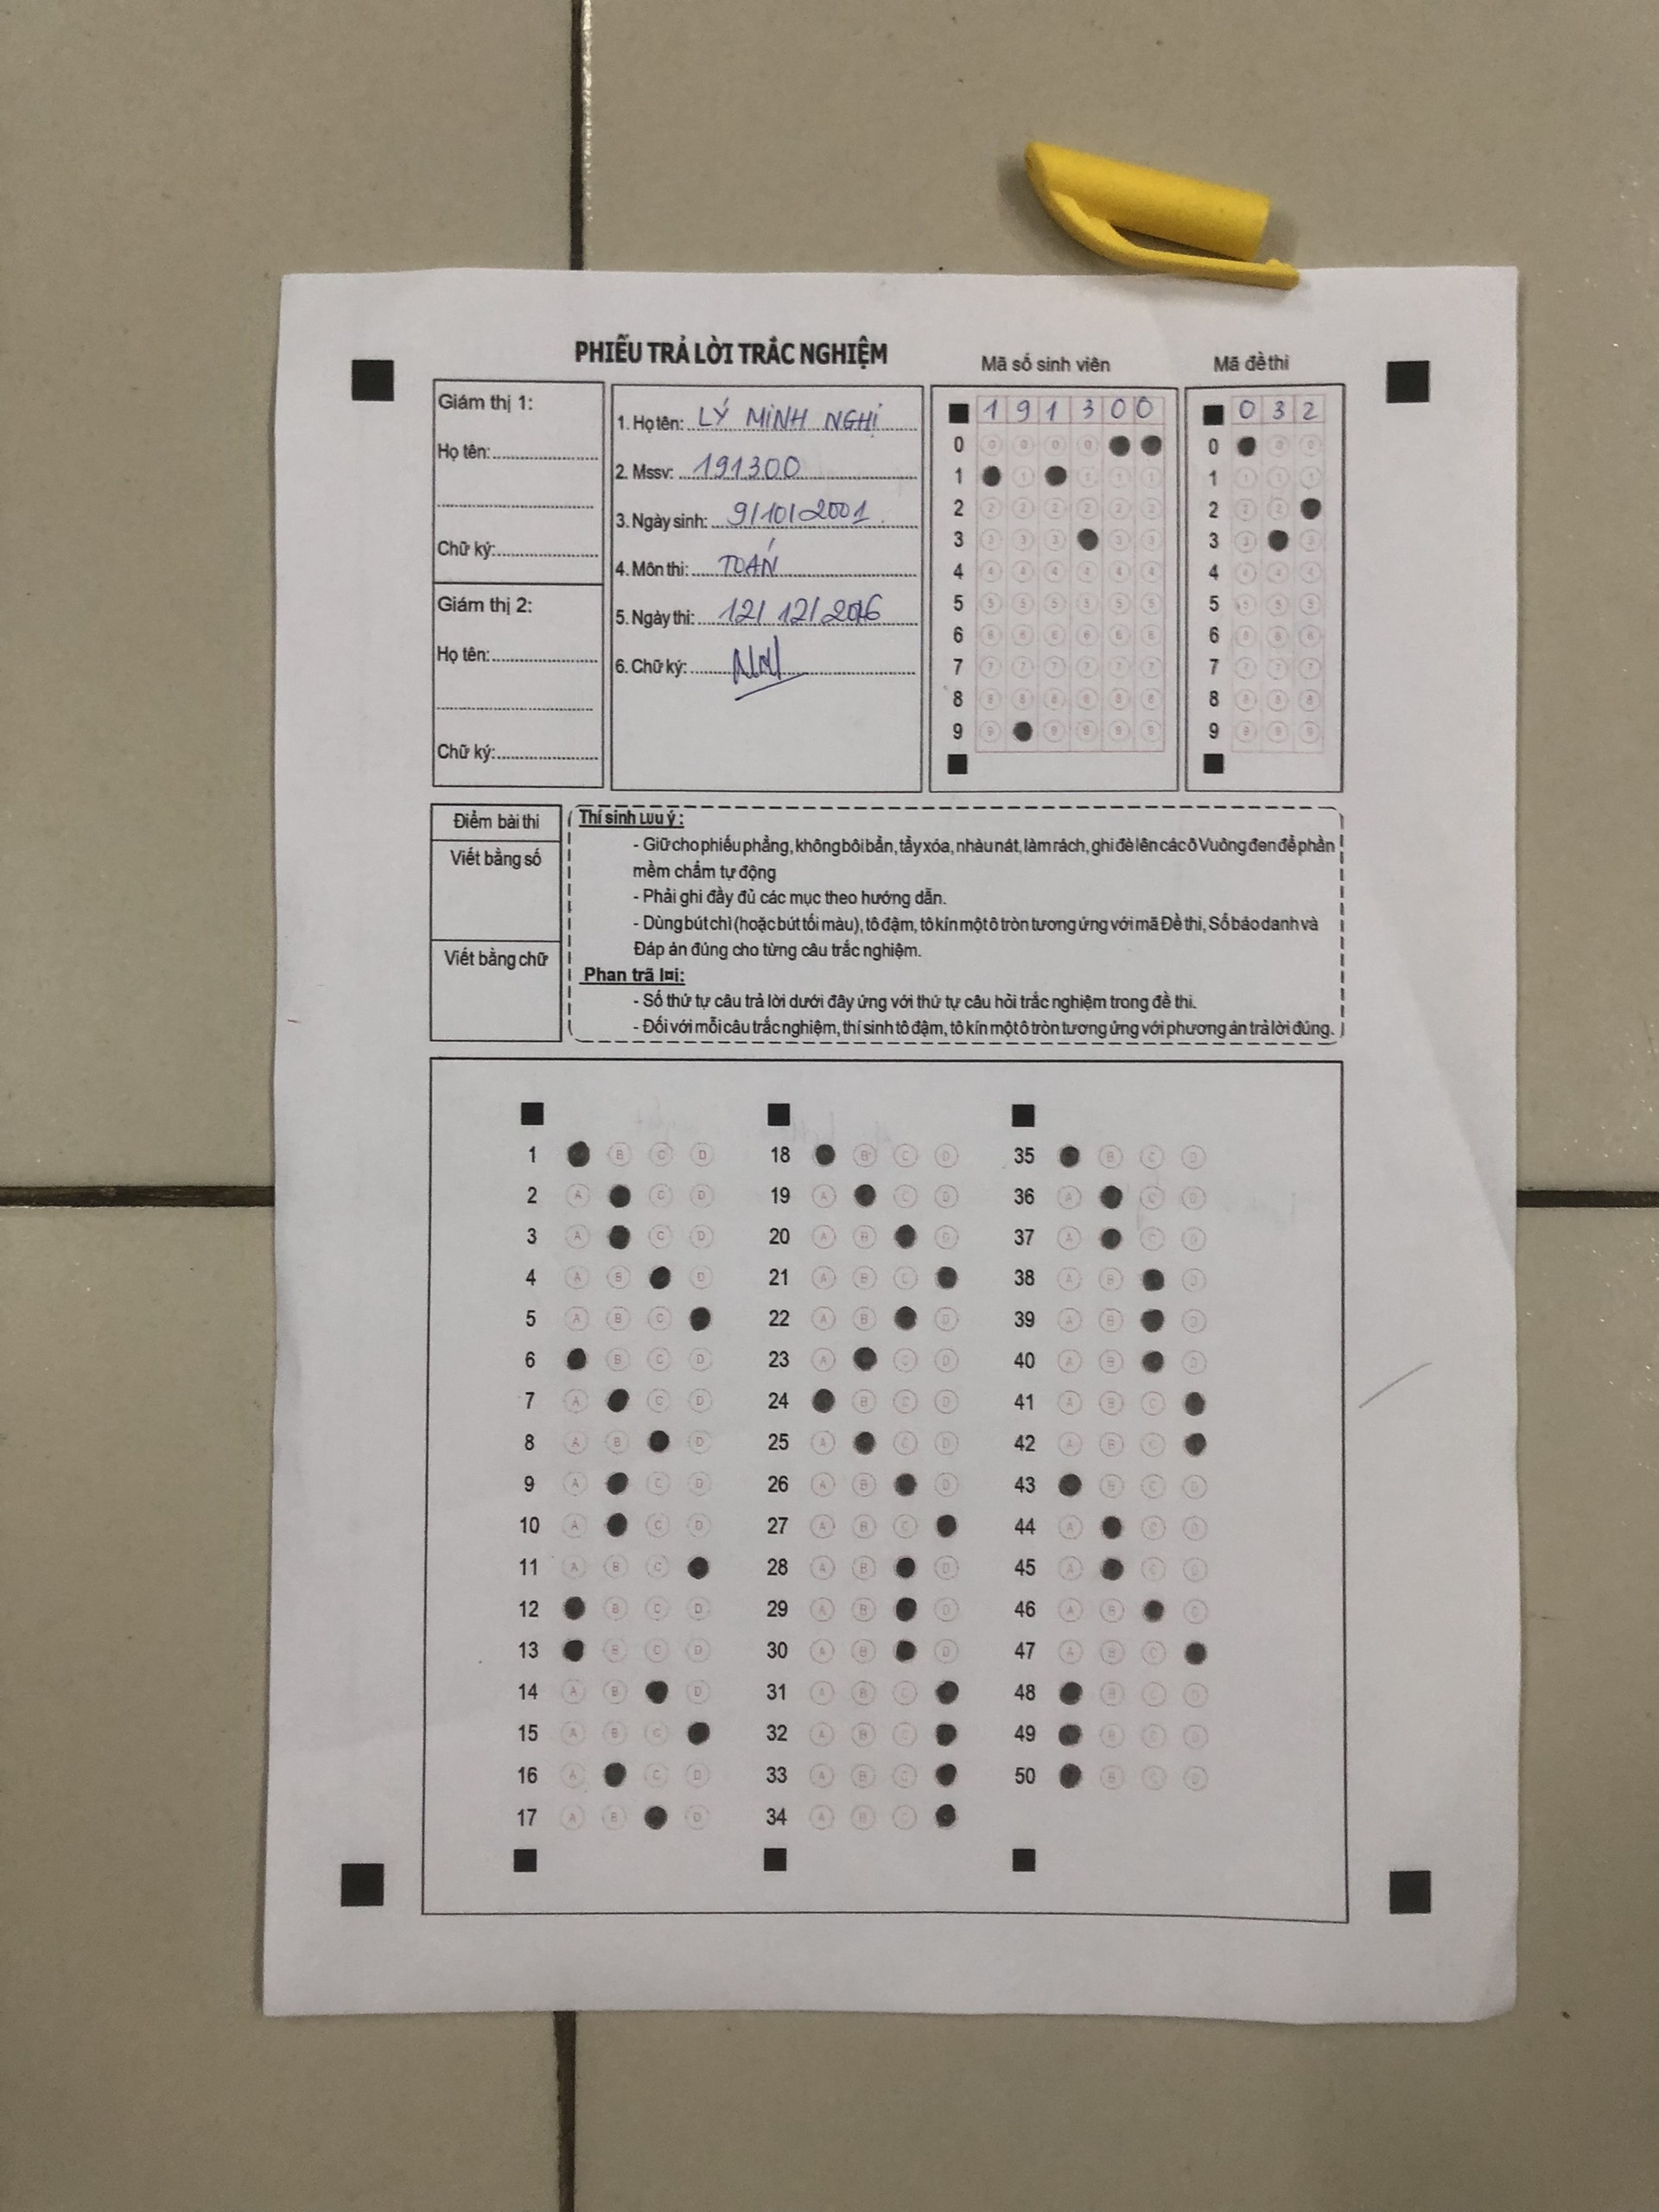 PHIẾU TRẢ LỜI TRẮC NGHIỆM
Mã số sinh viên
Mã đề thi
Giám thị 1:
Họ tên:
Chữ ký:
Giám thị 2:
Họ tên:
Chữ ký:
1. Họ tên: LÝ MINH NGHỊ
2. Mssv: 191300
3. Ngày sinh: 9/10/2001
4. Môn thi: TOÁN
5. Ngày thi: 12/12/2016
6. Chữ ký:
1 9 1 3 0 0
0
1
2
3
4
5
6
7
8
9
0 3 2
0
1
2
3
4
5
6
7
8
9
Điểm bài thi
Viết bằng số
Viết bằng chữ
Thí sinh Lưu ý:
- Giữ cho phiếu phẳng, không bôi bẩn, tẩy xóa, nhàu nát, làm rách, ghi đè lên các ô Vuông đen để phần
mềm chấm tự động
- Phải ghi đầy đủ các mục theo hướng dẫn.
- Dùng bút chì (hoặc bút tối màu), tô đậm, tô kín một ô tròn tương ứng với mã Đề thi, Số báo danh và
Đáp án đúng cho từng câu trắc nghiệm.
Phan trã lời:
- Số thứ tự câu trả lời dưới đây ứng với thứ tự câu hỏi trắc nghiệm trong đề thi.
- Đối với mỗi câu trắc nghiệm, thí sinh tô đậm, tô kín một ô tròn tương ứng với phương án trả lời đúng.
1 B C D
2 A C D
3 A C D
4 A B D
5 A B C
6 B C D
7 A C D
8 A B D
9 A C D
10 A C D
11 A B C
12 B C D
13 B C D
14 A B D
15 A B C
16 A C D
17 A B D
18 B C D
19 A C D
20 A B D
21 A B C
22 A B D
23 A C D
24 B C D
25 A C D
26 A B D
27 A B C
28 A B D
29 A B D
30 A B D
31 A B C
32 A B C
33 A B C
34 A B C
35 B C D
36 A C D
37 A C D
38 A B D
39 A B D
40 A B D
41 A B C
42 A B C
43 B C D
44 A C D
45 A C D
46 A B D
47 A B C
48 B C D
49 B C D
50 B C D